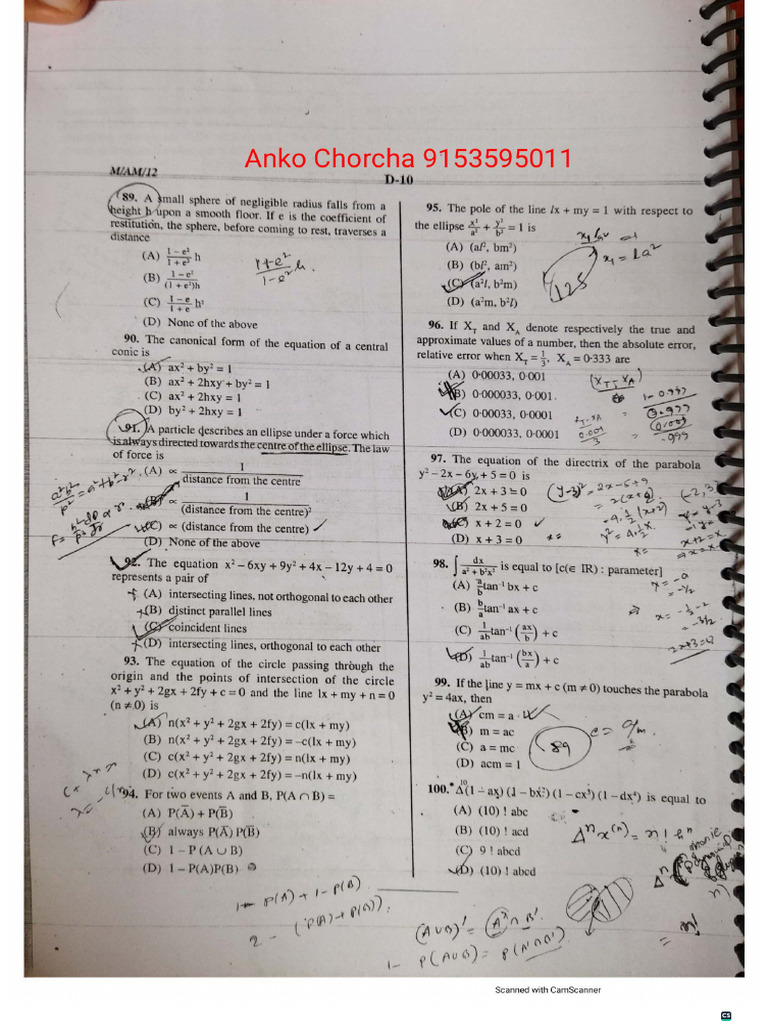 Anko Chorcha 9153595011
M/AM/12
D-10
89. A small sphere of negligible radius falls from a
height h upon a smooth floor. If e is the coefficient of
restitution, the sphere, before coming to rest, traverses a
distance
(A) (1 – e²)/(1 + e²) h
(B) (1 – e²)/((1 + e²)h)
(C) (1 – e)/(1 + e) h²
(D) None of the above
(1+e²)/(1–e²) h.
90. The canonical form of the equation of a central
conic is
(A) ax² + by² = 1
(B) ax² + 2hxy + by² = 1
(C) ax² + 2hxy = 1
(D) by² + 2hxy = 1
91. A particle describes an ellipse under a force which
is always directed towards the centre of the ellipse. The law
of force is
(A) ∝ 1/distance from the centre
(B) ∝ 1/(distance from the centre)²
(C) ∝ (distance from the centre)
(D) None of the above
a²b²/p² = a²+b²–r².
92. The equation x² – 6xy + 9y² + 4x – 12y + 4 = 0
represents a pair of
(A) intersecting lines, not orthogonal to each other
(B) distinct parallel lines
(C) coincident lines
(D) intersecting lines, orthogonal to each other
93. The equation of the circle passing through the
origin and the points of intersection of the circle
x² + y² + 2gx + 2fy + c = 0 and the line lx + my + n = 0
(n ≠ 0) is
(A) n(x² + y² + 2gx + 2fy) = c(lx + my)
(B) n(x² + y² + 2gx + 2fy) = –c(lx + my)
(C) c(x² + y² + 2gx + 2fy) = n(lx + my)
(D) c(x² + y² + 2gx + 2fy) = –n(lx + my)
94. For two events A and B, P(A ∩ B) =
(A) P(A̅) + P(B̅)
(B) always P(A̅) P(B̅)
(C) 1 – P (A ∪ B)
(D) 1 – P(A)P(B)
1 – P(A) + 1 – P(B)
2 – (P(A) + P(B)).
95. The pole of the line lx + my = 1 with respect to
the ellipse x²/a² + y²/b² = 1 is
(A) (al², bm²)
(B) (bl², am²)
(C) (a²l, b²m)
(D) (a²m, b²l)
x₁ = la²
125
96. If X_T and X_A denote respectively the true and
approximate values of a number, then the absolute error,
relative error when X_T = 1/3, X_A = 0·333 are
(A) 0·00033, 0·001
(B) 0·000033, 0·001
(C) 0·00033, 0·0001
(D) 0·000033, 0·0001
97. The equation of the directrix of the parabola
y² – 2x – 6y + 5 = 0 is
(A) 2x + 3 = 0
(B) 2x + 5 = 0
(C) x + 2 = 0
(D) x + 3 = 0
98. ∫ dx/(a² + b²x²) is equal to [c(∈ IR) : parameter]
(A) a/b tan⁻¹ bx + c
(B) b/a tan⁻¹ ax + c
(C) 1/ab tan⁻¹ (ax/b) + c
(D) 1/ab tan⁻¹ (bx/a) + c
99. If the line y = mx + c (m ≠ 0) touches the parabola
y² = 4ax, then
(A) cm = a
(B) m = ac
(C) a = mc
(D) acm = 1
89
c = a/m
100. Δ¹⁰(1 – ax) (1 – bx²) (1 – cx³) (1 – dx⁴) is equal to
(A) (10) ! abc
(B) (10) ! acd
(C) 9 ! abcd
(D) (10) ! abcd
Δⁿ x⁽ⁿ⁾ = n! hⁿ
= n!
(A∪B)' = A' ∩ B'
1 – P(A∪B) = P(A'∩B')
Scanned with CamScanner
CS